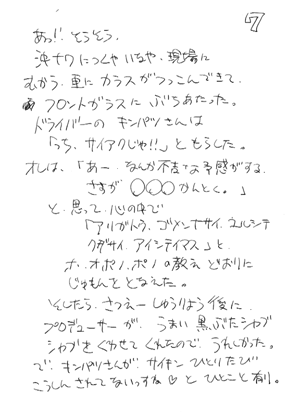 7
あっ!! そうそう。
沖ナワにつくやいなや、現場に
むかう、車にカラスがつっこんできて、
フロントガラスにぶちあたった。
ドライバーのキンパツさんは
「うち、サイアクじゃ!!」ともらした。
オレは、「あー、なんか不吉な予感がする
さすが〇〇〇かんとく。」
と、思って、心の中で
「アリガトウ、ゴメンナサイ、ユルシテ
クダサイ、アイシテイマス」と、
ホ、オポノ、ポノの教え どおりに
じゅもんをとなえた。
そしたら、さつえーしゅうりょう後に、
プロデューサーが、うまい黒ぶたシャブ
シャブをくわせてくれたので、うれしかった。
で、キンパツさんが、サイキン ひとりたび
こうしんされてないっすね♡ と ひとこと有り。